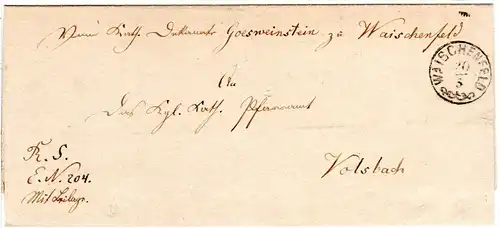 Vom Kath. Dekanate Goesweinstein zu Waischenfeld
WAISCHENFELD
20
5
An
Das Kgl. Kath. Pfarramt
Volsbach
R. S.
E. N. 204.
Mit Beilage.